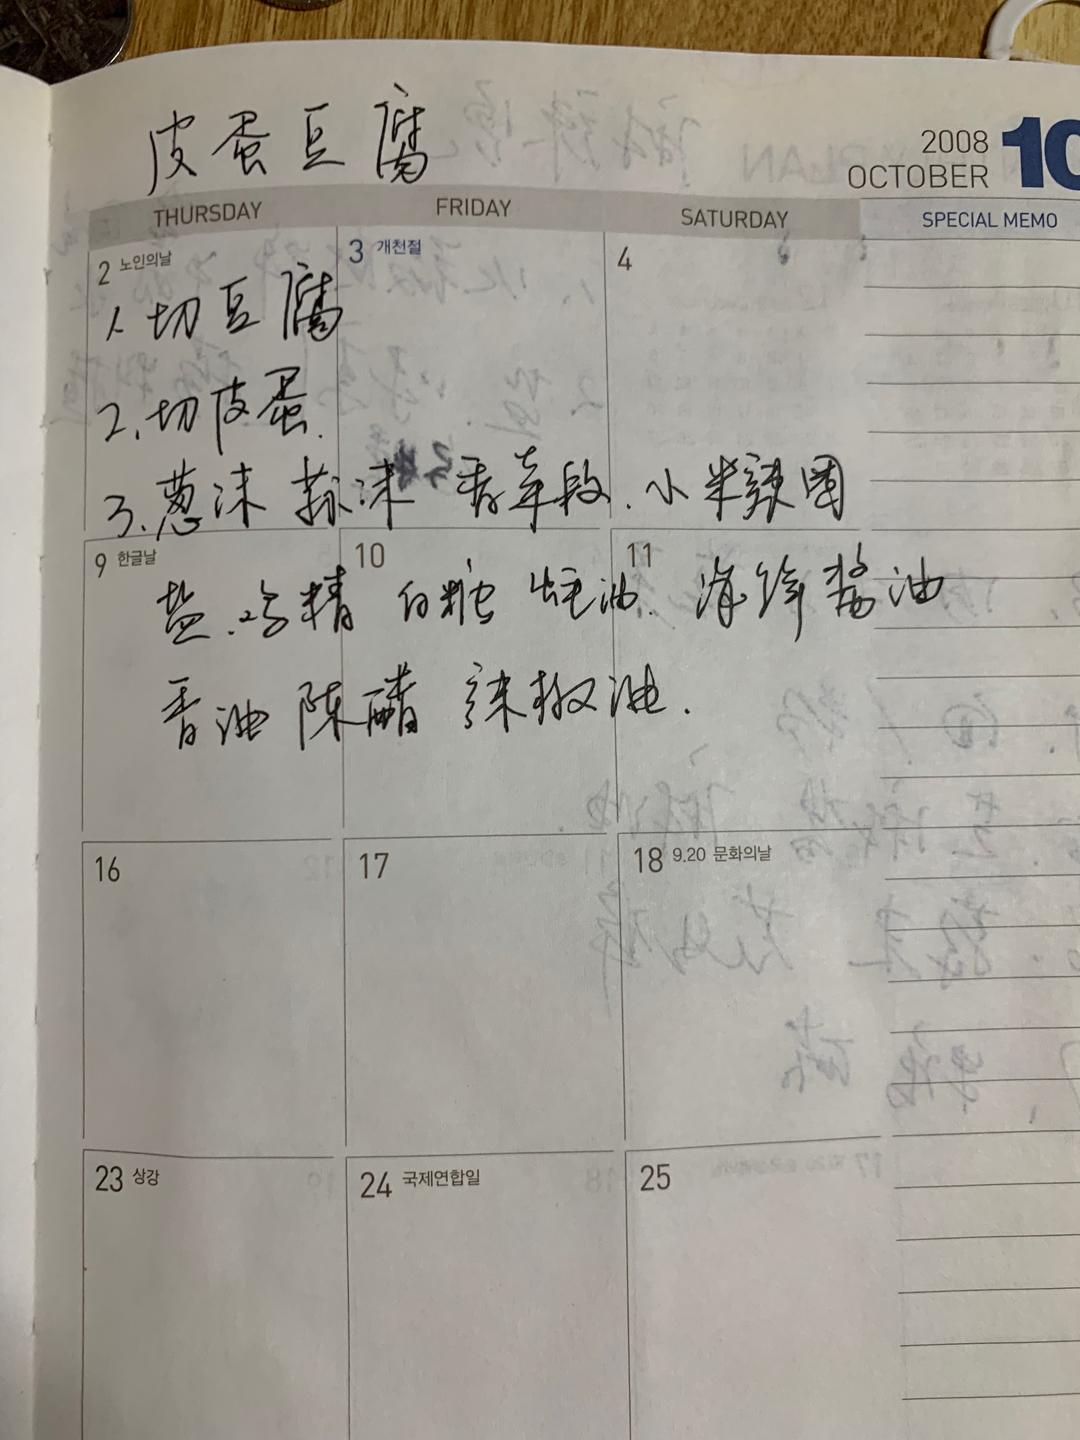 皮蛋豆腐
2008
OCTOBER 10
THURSDAY FRIDAY SATURDAY SPECIAL MEMO
2 노인의날 3 개천절 4
1、切豆腐
2、切皮蛋.
3、葱沫 蒜沫 香菜段、小米辣圈
9 한글날 10 11
盐、鸡精 白糖 蚝油、海鲜酱油
香油 陈醋 辣椒油.
16 17 18 9.20 문화의날
23 상강 24 국제연합일 25